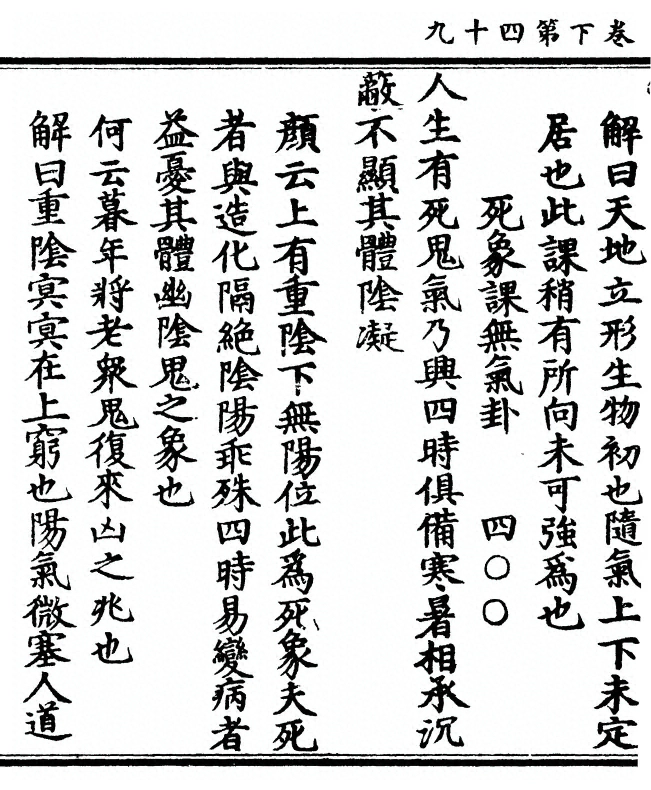 卷下第四十九
解曰天地立形生物初也隨氣上下未定
居也此課稍有所向未可強爲也
死象課無氣卦 四〇〇
人生有死鬼氣乃興四時俱備寒暑相承沉
蔽不顯其體陰凝
顏云上有重陰下無陽位此爲死象夫死
者與造化隔絶陰陽乖殊四時易變病者
益憂其體幽陰鬼之象也
何云暮年將老衆鬼復來凶之兆也
解曰重陰冥冥在上窮也陽氣微塞人道